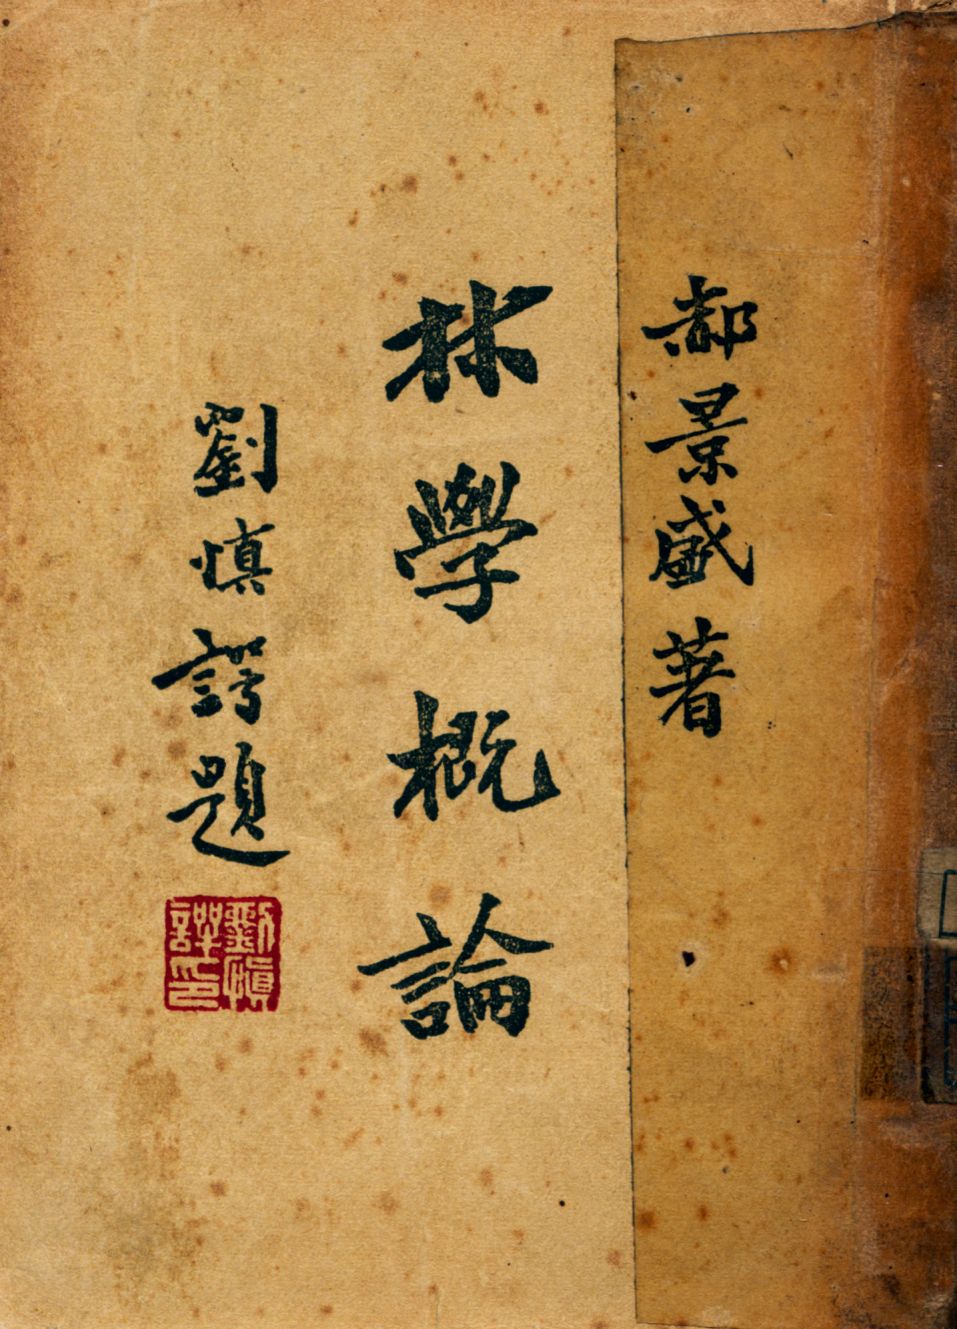 郝景盛著
林學概論
劉慎諤題
劉慎諤印